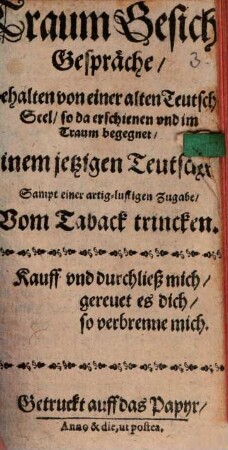 Traum Gesich
Gespräche/
3.
ehalten von einer alten Teutsch
Seel/ so da erschienen vnd im
Traum begegnet/
inem jetzigen Teutsch
Sampt einer artig-lustigen Zugabe/
Vom Taback trincken.
Kauff vnd durchließ mich/
gereuet es dich/
so verbrenne mich.
Getruckt auff das Papyr/
Anno & die, ut postea.